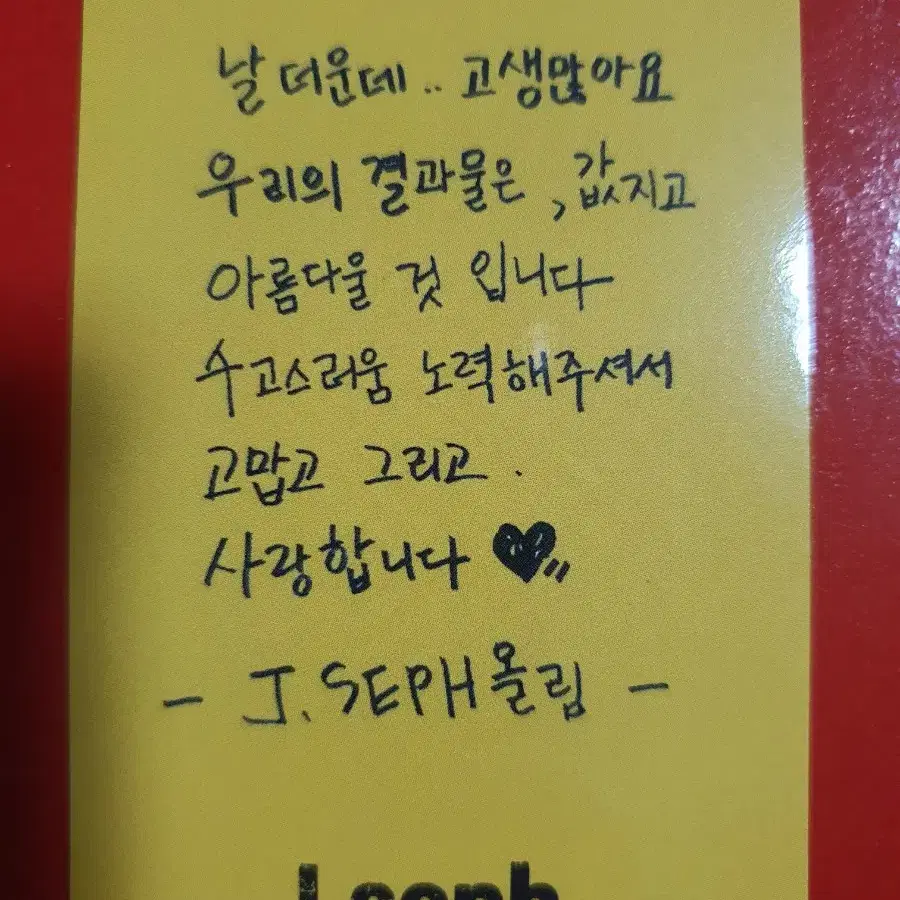 날 더운데.. 고생많아요
우리의 결과물은, 값지고
아름다울 것 입니다
수고스러움 노력해주셔서
고맙고 그리고.
사랑합니다
- J.SEPH올림 -
J.seph